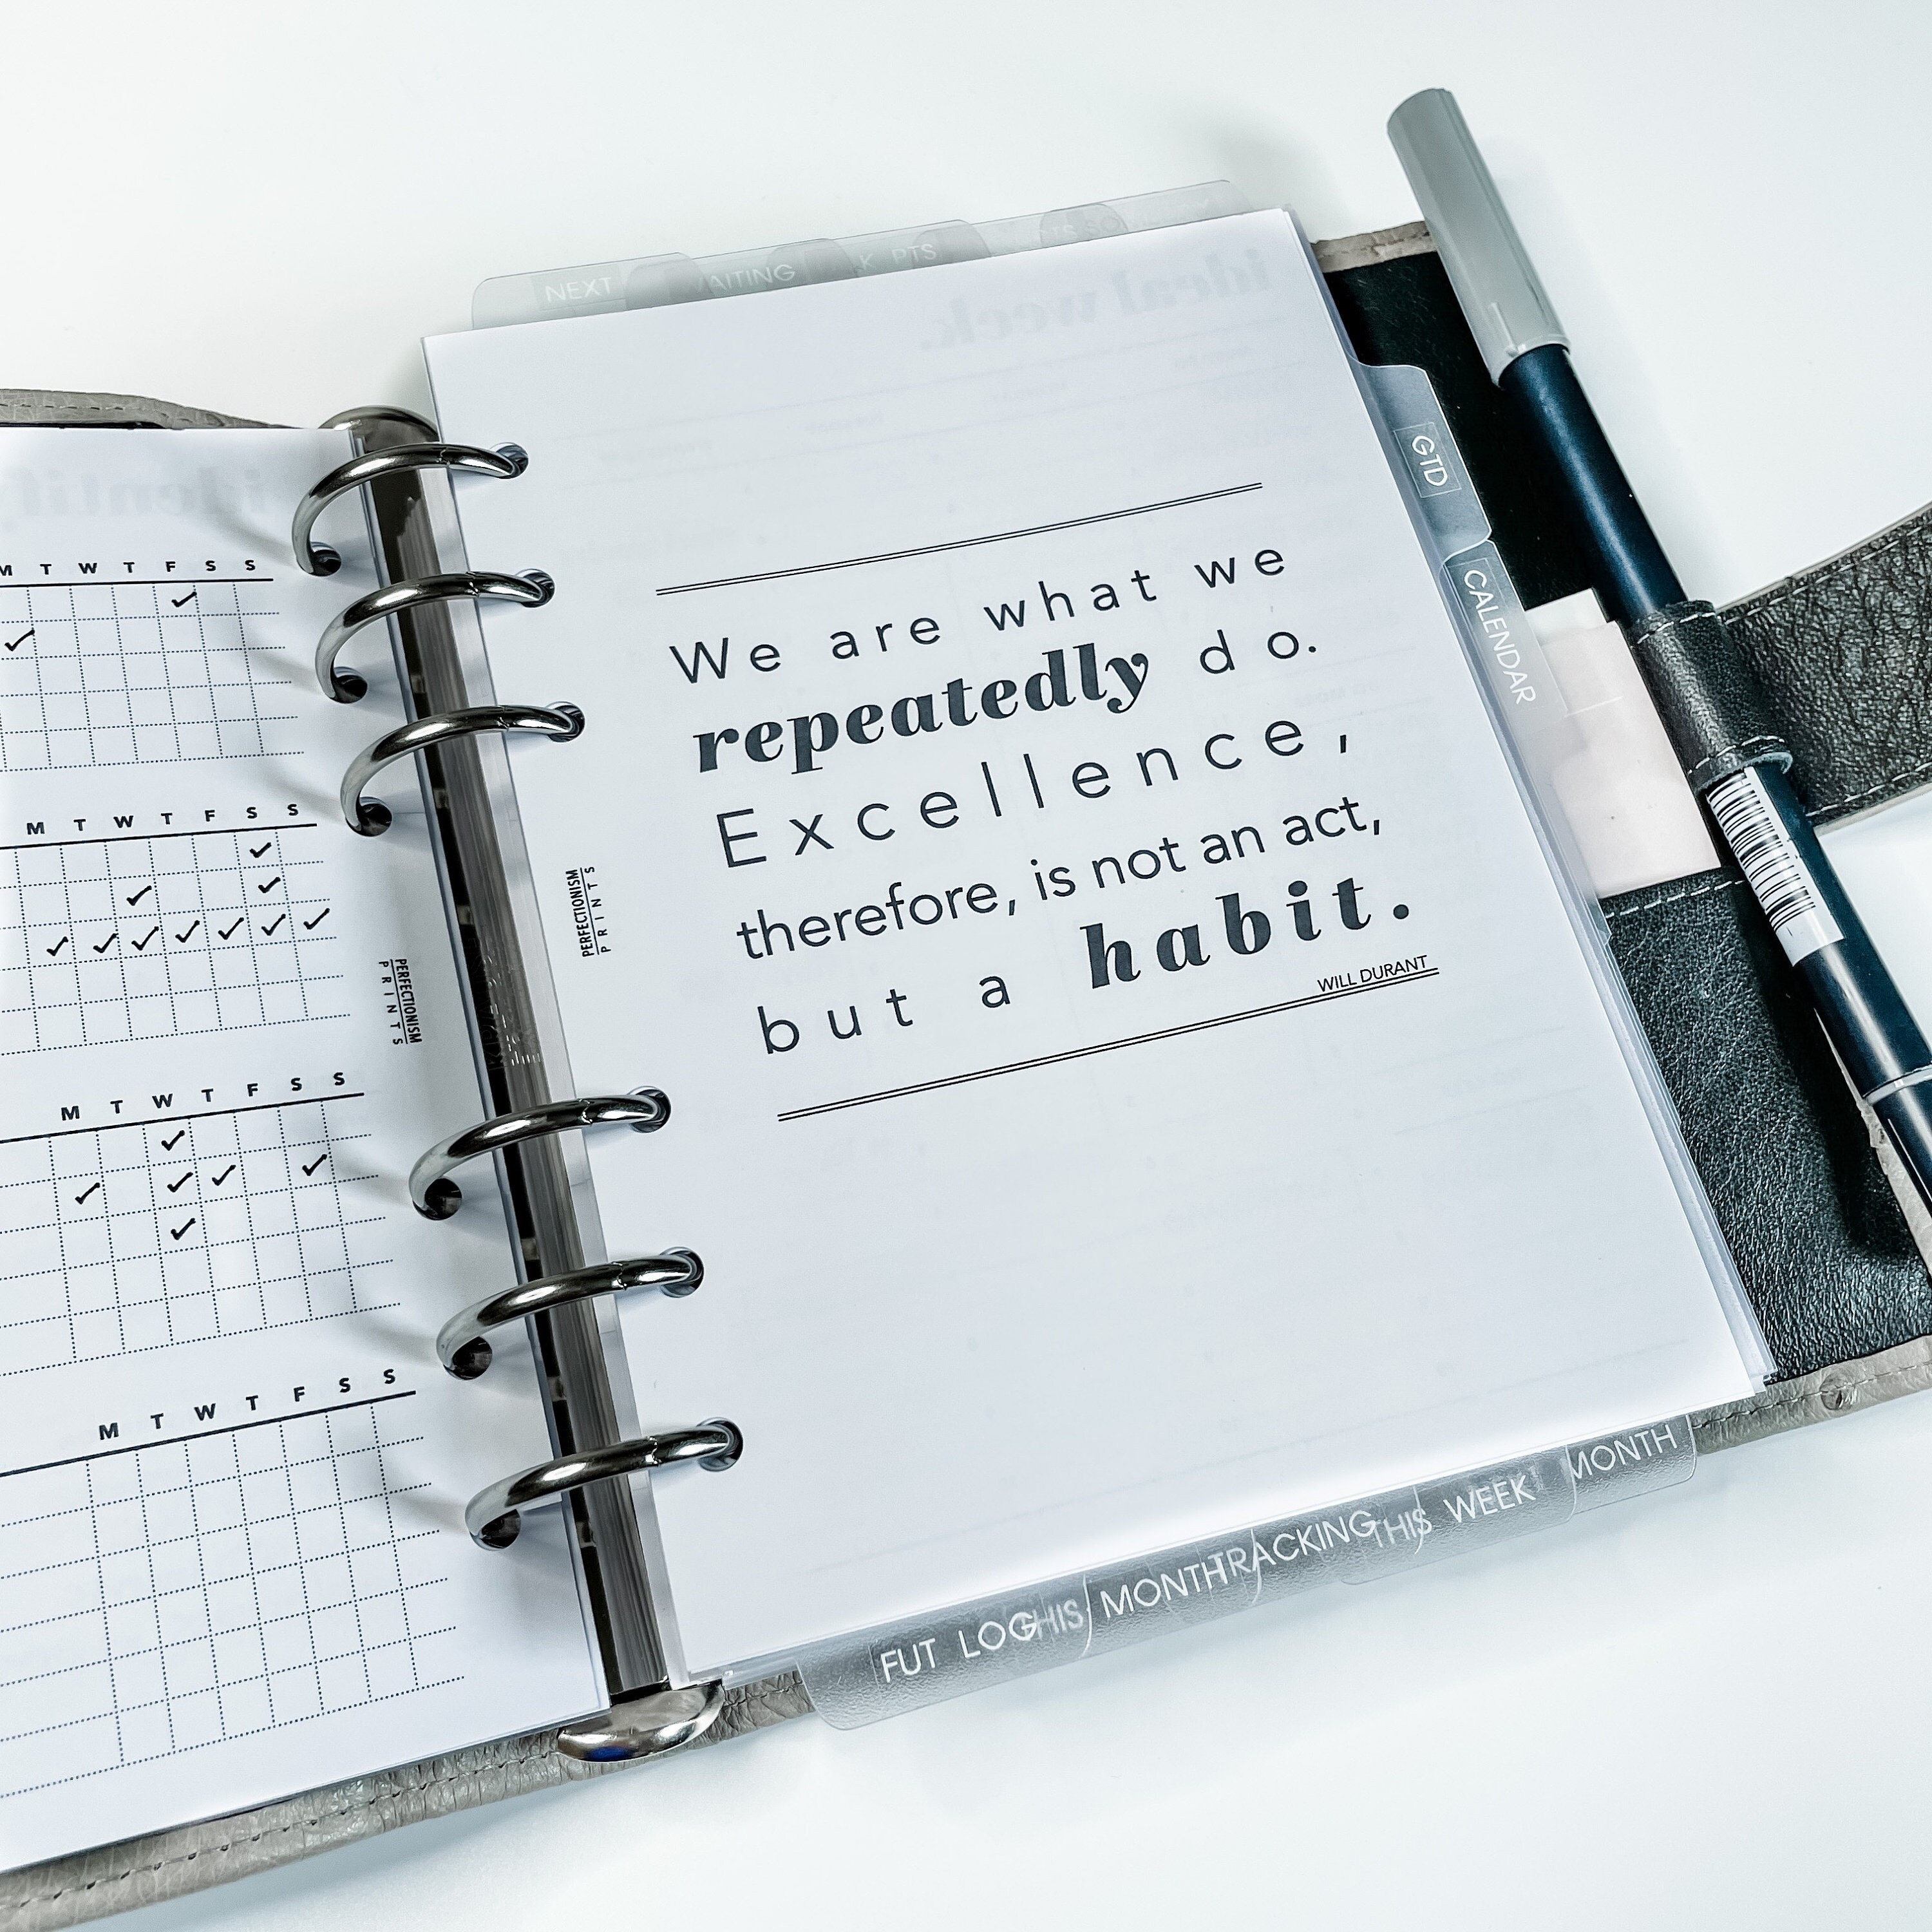 NEXT
WAITING
PTS
GTD
CALENDAR
M T W T F S S
M T W T F S S
M T W T F S S
M T W T F S S
PERFECTIONISM
PRINTS
PERFECTIONISM
PRINTS
We are what we
repeatedly do.
Excellence,
therefore, is not an act,
but a habit.
WILL DURANT
FUT LOG
THIS MONTH
TRACKING
THIS WEEK
MONTH
ideal week.